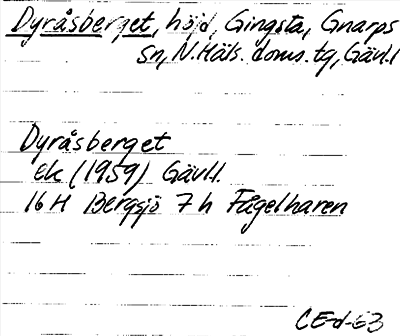 Dyråsberget, höjd, Gingsta, Gnarps
sn, N. Häls. doms. tg, Gävl.l
Dyråsberget
ek (1959) Gävl.l.
16 H Bergsjö 7 h Fågelharen
CE-d-63